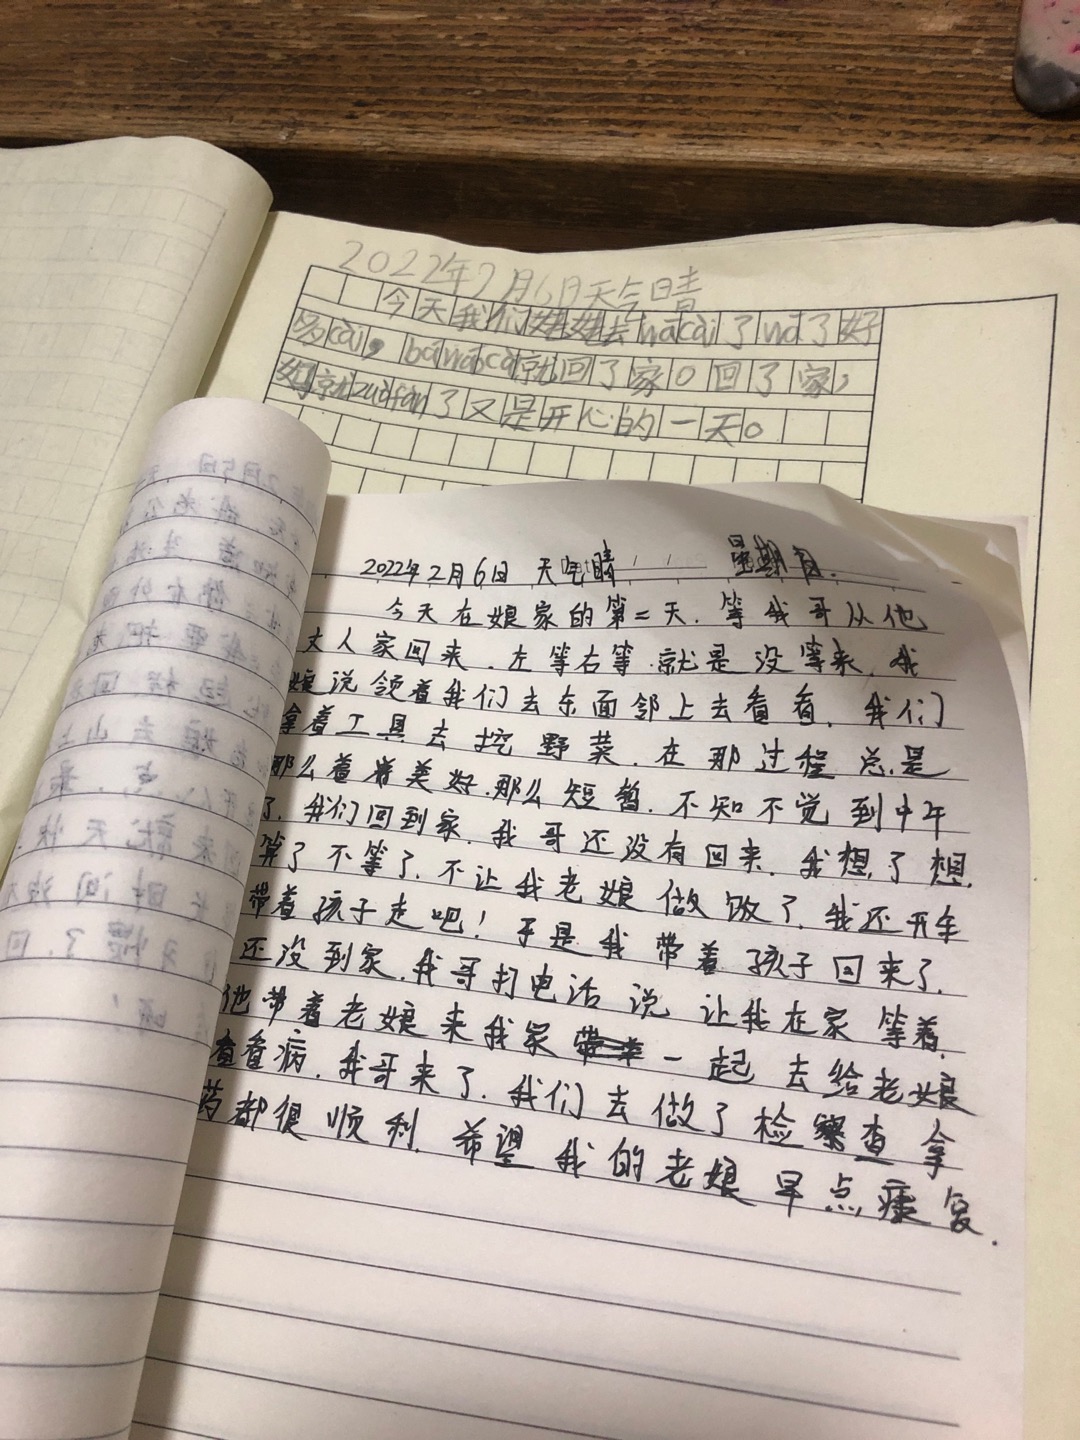 2022年2月6日天气晴
今天我们去wācài了wā了好
多cài，bǎwācài就回了家。回了家，
就zuòfàn了又是开心的一天。
2022年2月6日 天气晴 星期日.
今天在娘家的第二天.等我哥从他
丈人家回来.左等右等.就是没等来.我
娘说领着我们去东面邻上去看看.我们
拿着工具去挖野菜.在那过程总是
那么着美好.那么短暂.不知不觉到中午
了.我们回到家.我哥还没有回来.我想了想
算了不等了.不让我老娘做饭了.我还开车
带着孩子走吧！于是我带着孩子回来了.
还没到家.我哥打电话说让我在家等着.
他带着老娘来我家一起去给老娘
看看病.我哥来了.我们去做了检查拿
药都很顺利.希望我的老娘早点康复.